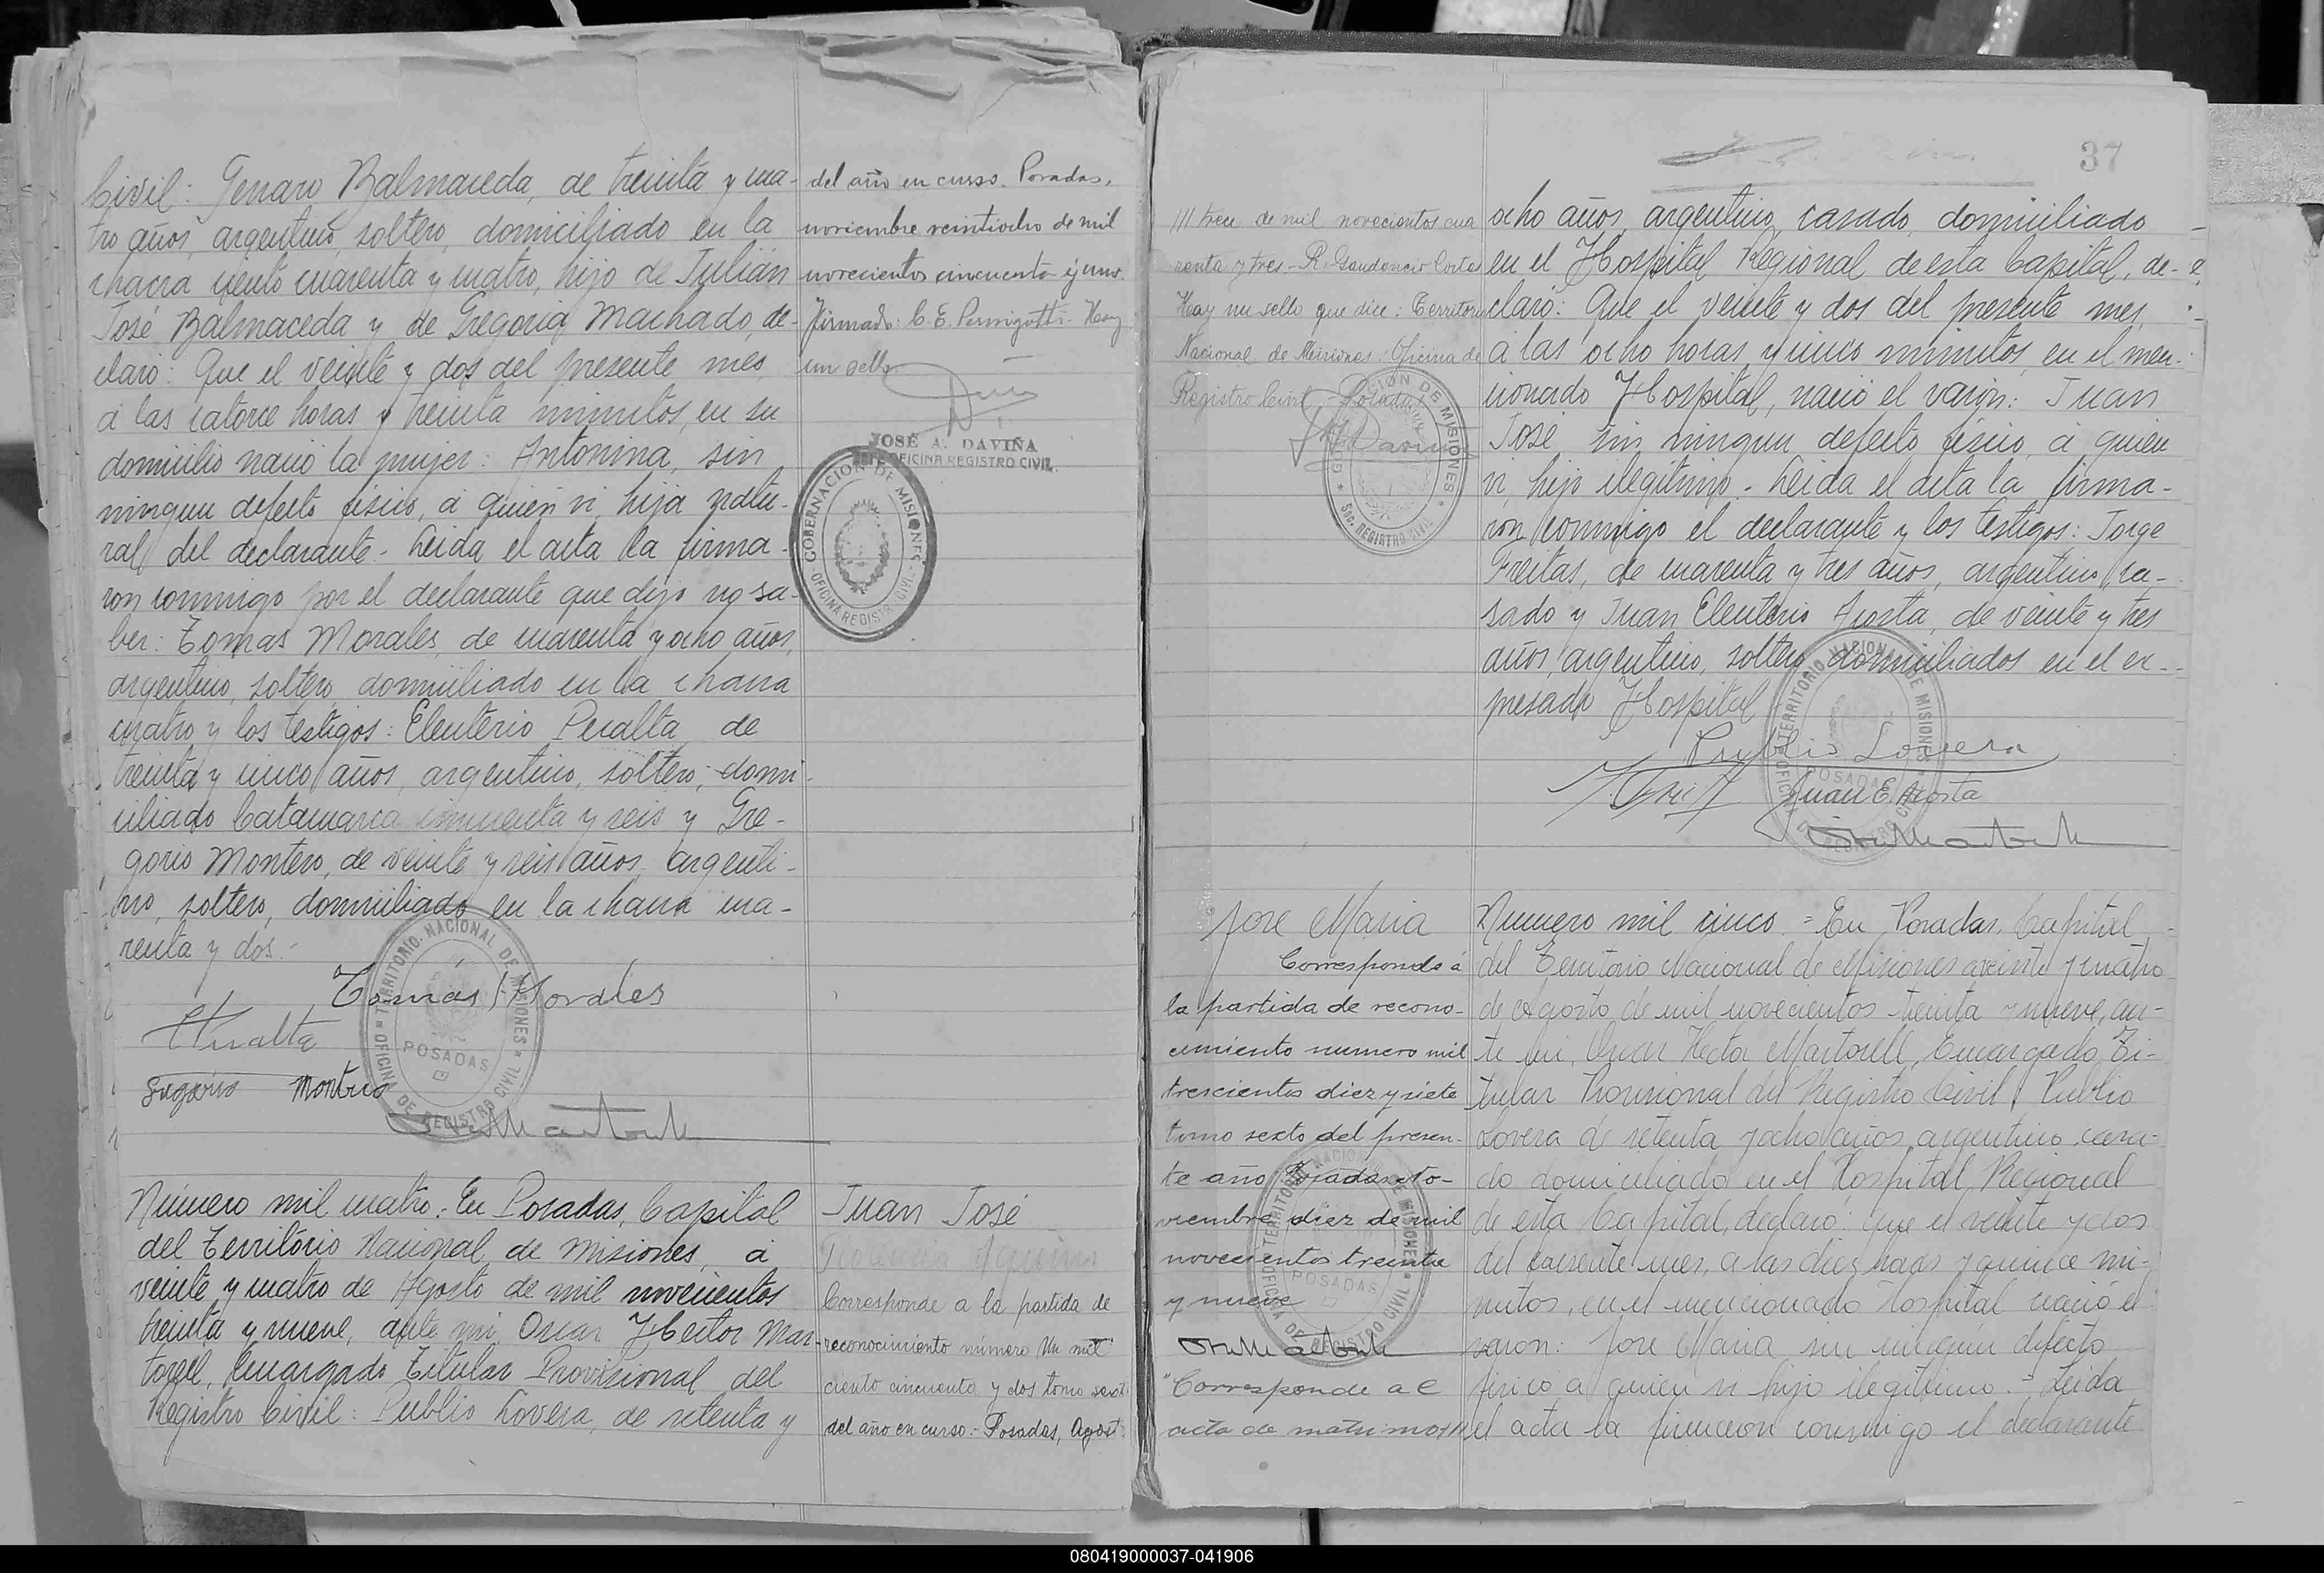 Civil: Genaro Balmaceda, de treinta y cua-
tro años, argentino, soltero, domiciliado en la
chacra ciento cuarenta y cuatro, hijo de Julián
José Balmaceda y de Gregoria Machado, de-
claró: Que el veinte y dos del presente mes,
a las catorce horas y treinta minutos, en su
domicilio nació la mujer: Antonina, sin
ningun defecto fisico, a quien vi, hija natu-
ral del declarante.- Leida el acta la firma-
ron conmigo por el declarante que dijo no sa-
ber: Tomas Morales, de cuarenta y ocho años,
argentino, soltero, domiciliado en la chacra
cuatro y los testigos: Eleuterio Peralta, de
treinta y cinco años, argentino, soltero, domi-
ciliado Catamarca cincuenta y seis y Gre-
gorio Montero, de veinte y seis años, argenti-
no, soltero, domiciliado en la chacra cua-
renta y dos.-
Tomás Morales
EPeralta
Gregorio Montero
TERRITORIO NACIONAL DE MISIONES
POSADAS
OFICINA DE REGISTRO CIVIL
Número mil cuatro.- En Posadas, Capital
del Território Nacional de Misiones, a
veinte y cuatro de Agosto de mil novecientos
treinta y nueve, ante mi Oscar Hector Mar-
torell, Encargado Titular Provisional del
Registro Civil: Publio Lovera, de setenta y
del año en curso. Posadas,
noviembre veintiocho de mil
novecientos cincuenta y uno.
Firmado: C. E. Hay
un sello.
JOSÉ A. DAVIÑA
OFICINA REGISTRO CIVIL
GOBERNACION DE MISIONES
OFICINA REGISTRO CIVIL
Juan José
Corresponde a la partida de
reconocimiento número Un mil
ciento cincuenta y dos tomo sexto
del año en curso.- Posadas, Agosto
37
/// trece de mil novecientos cua
renta y tres.- R. Gaudencio Cortes
Hay un sello que dice: Territorio
Nacional de Misiones. Oficina de
Registro Civil - Posadas
GOBERNACIÓN DE MISIONES
Sec. REGISTRO CIVIL
ocho años, argentino, casado, domiciliado
en el Hospital Regional de esta Capital, de-
claró: Que el veinte y dos del presente mes,
a las ocho horas y cinco minutos, en el men-
cionado Hospital, nació el varón: Juan
José sin ningun defecto fisico, a quien
vi, hijo ilegitimo.- Leida el acta la firma-
ron conmigo el declarante y los testigos: Jorge
Freitas, de cuarenta y tres años, argentino, ca-
sado y Juan Eleuterio Acosta, de veinte y tres
años, argentino, soltero, domiciliados en el ex-
presado Hospital
Publio Lovera
Juan E. Acosta
TERRITORIO NACIONAL DE MISIONES
POSADAS
OFICINA DE REGISTRO CIVIL
Jose Maria
Corresponde á
la partida de recono-
cimiento numero mil
trescientos diez y siete
tomo sexto del presen-
te año Posadas no-
viembre diez de mil
novecientos treinta
y nueve
"Corresponde al
acta de matrimonio
TERRITORIO NACIONAL DE MISIONES
POSADAS
OFICINA DE REGISTRO CIVIL
Numero mil cinco.= En Posadas, Capital
del Territorio Nacional de Misiones a veinte y cuatro
de Agosto de mil novecientos treinta y nueve, an-
te mi, Oscar Hector Martorell, Encargado Ti-
tular Provisional del Registro Civil, Publio
Lovera de setenta y ocho años, argentino, casa-
do domiciliado en el Hospital Regional
de esta Capital, declaró: que el veinte y dos
del presente mes, a las diez horas y quince mi-
nutos, en el mencionado Hospital nació el
varon: Jose Maria sin ningun defecto
fisico a quien vi hijo ilegitimo.= Leida
el acta la firmaron conmigo el declarante
080419000037-041906